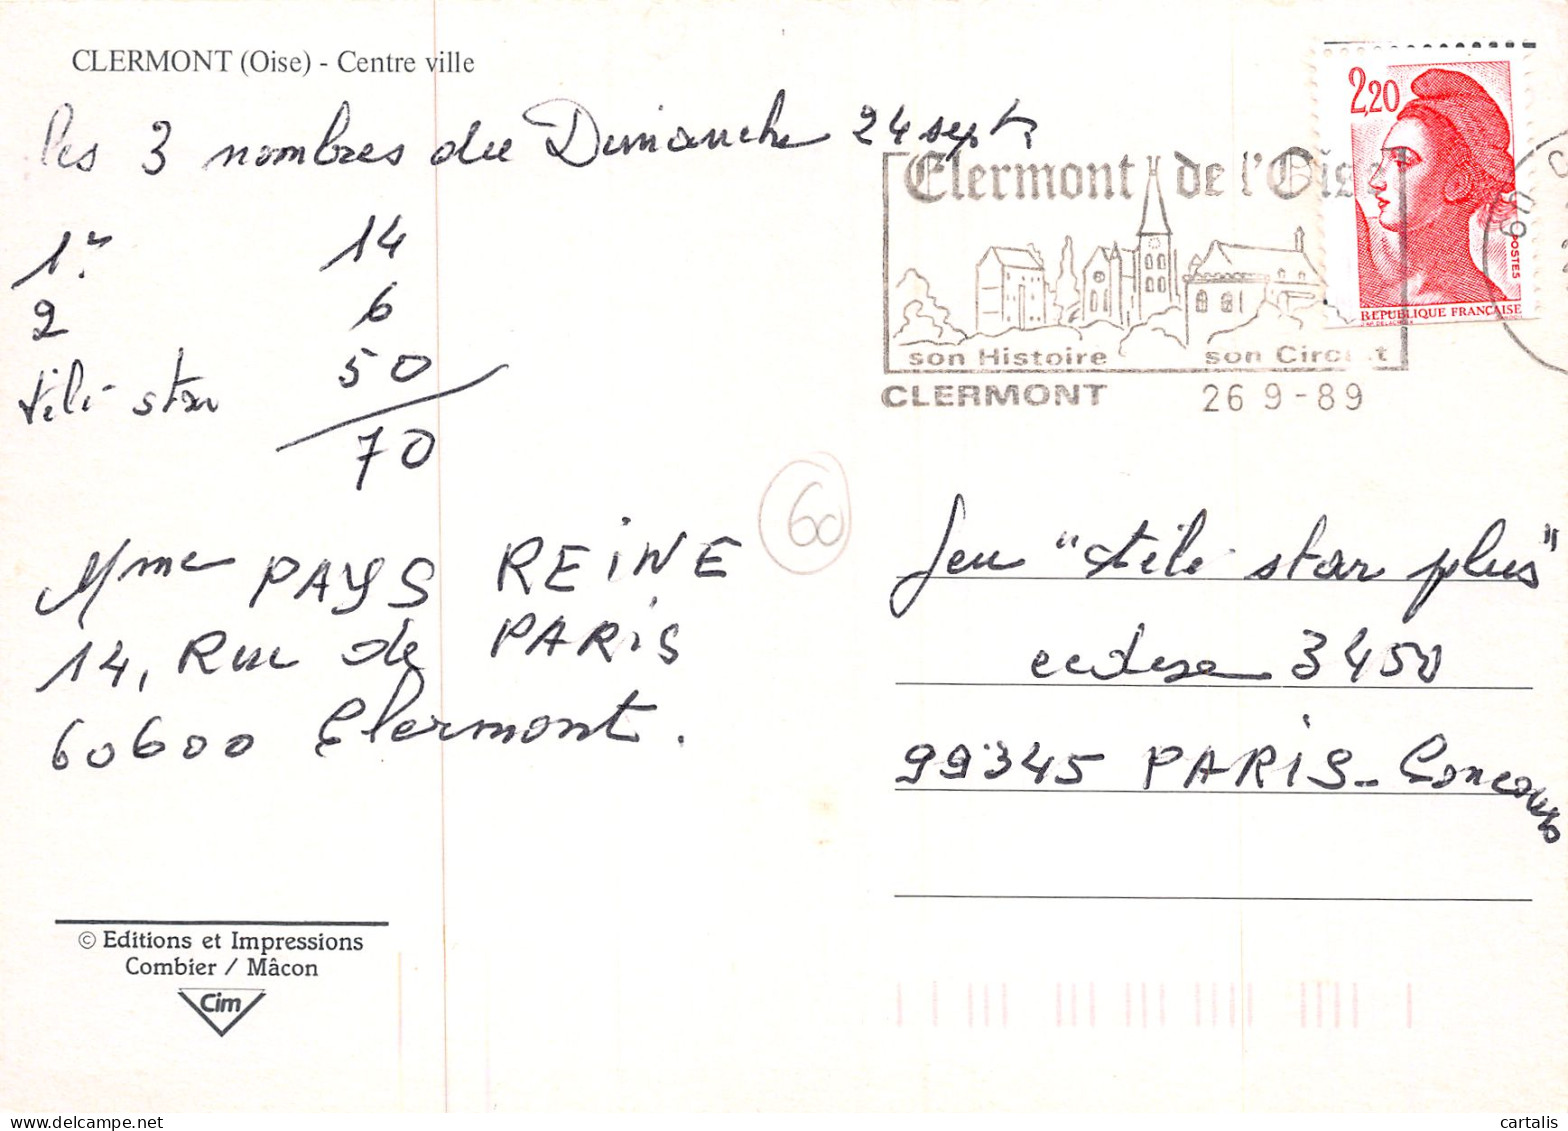 CLERMONT (Oise) - Centre ville
les 3 nombres du Dimanche 24 sept
1er 14
2 6
télé star 50
70
Mme PAYS REINE
14, Rue de PARIS
60600 Clermont.
© Editions et Impressions
Combier / Mâcon
Cim
60
2,20
POSTES
REPUBLIQUE FRANÇAISE
Clermont de l'Oise
son Histoire son Circuit
CLERMONT 26 9-89
60
Jeu "télé star plus"
cedex 3450
99345 PARIS - Concours
cartalis